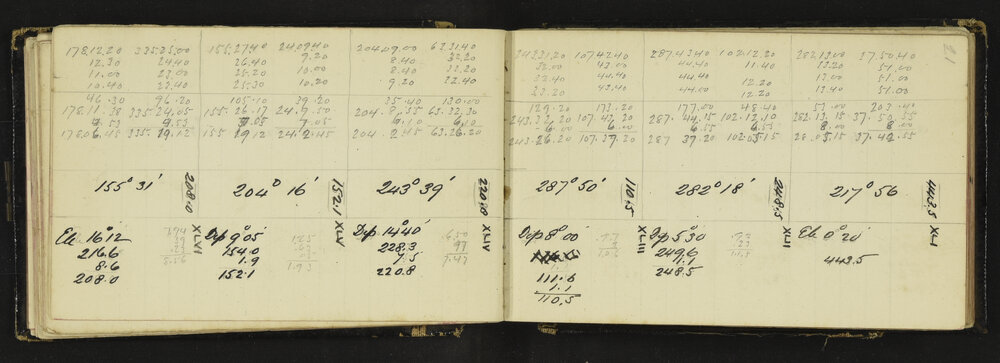 178.12.20 335.25.00
12.30 24.40
11.00 23.00
10.40 23.40
46.30 96.20
178.11.38 335.24.05
178.06.45 335.19.12
155° 31'
208.0
Ele 16°12
216.6
8.6
208.0
XLVI
155.27.40 24.09.40
26.40 9.20
25.20 10.00
25.30 10.20
105.10 39.20
155.26.17 24.9.50
7.05 7.05
155 19.12 24.2.45
204° 16'
152.1
Dip 9°05'
154.0
1.9
152.1
1.93
XLV
204.09.00 63.31.40
8.40 32.20
8.40 32.20
9.20 33.40
35.40 130.00
204.8.55 63.32.30
6.10 6.10
204.2.45 63.26.20
243° 39'
220.8
Dip 14°40'
228.3
7.5
220.8
6.50
97
7.47
XLIV
243.31.20 107.42.40
32.00 43.00
32.40 44.40
33.20 43.00
129.20 173.20
243.32.20 107.43.20
6.00 6.00
243.26.20 107.37.20
287° 50'
110.5
Dip 8°00'
111.6
1.1
110.5
XLIII
287.43.40 102.12.20
44.40 11.40
44.40 12.20
44.00 12.20
177.00 48.40
287.44.15 102.12.10
6.55 6.55
287 37.20 102.05.15
282° 18'
248.5
Dip 5°30
249.6
1.1
248.5
XLII
282.13.00 37.50.40
13.20 51.00
13.00 51.00
51.00
203.40
282.13.15 37.50.55
8.00 8.00
37.42.55
217° 56
443.5
Ele 0°20'
443.5
XLI